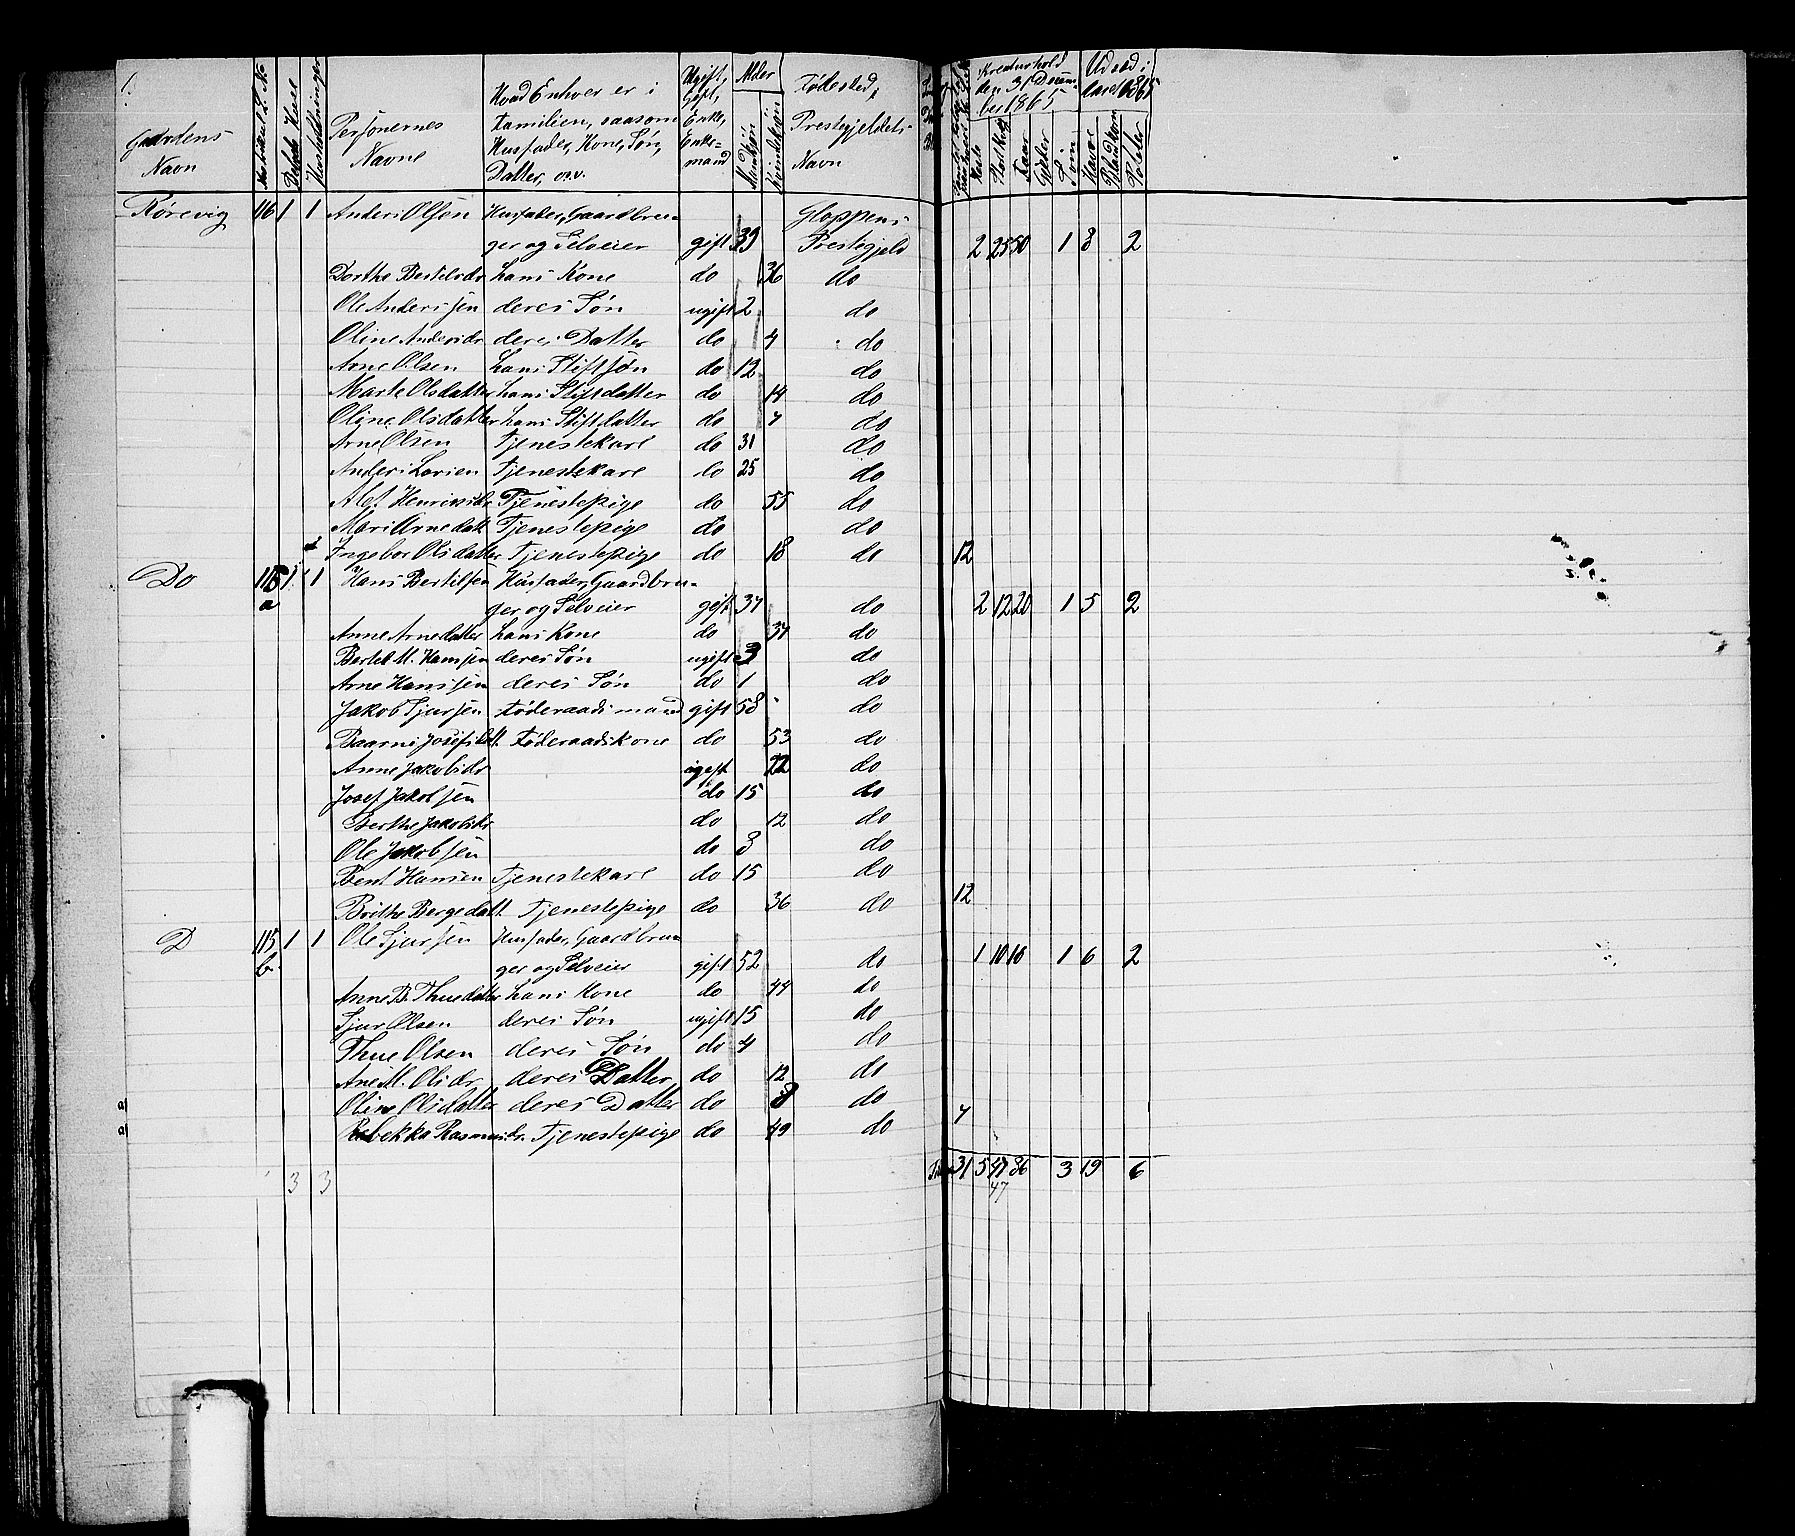 Gaardens Navn | Matrikul L. No | Bebott Huse | Husholdninger | Personernes Navne | Hvad Enhver er i Familien, saasom Husfader, Kone, Søn, Datter, o.s.v. | Ugift, Gift, Enke, Enkemand | Alder Mandkjøn | Kvindekjøn | Fødested, Prestegjeldets Navn | Kreaturhold den 31 December 1865 Heste | Stort Kvæg | Faar | Gjeder | Sviin | Udsæd i Aaret 1865 Havre | Blandkorn | Poteter
Rørevig 116 1 1 Anders Olsen Husfader, Gaardbru- Gloppens
ger og Selveier gift 39 Prestegjeld 2 25 50 1 8 2
Dorthe Bertelsdr hans Kone do 36 do
Ole Anderssen deres Søn ugift 2 do
Oline Andersdr deres Datter do 4 do
Arne Olsen hans Stifsøn do 12 do
Marte Olsdatter hans Stifdatter do 14 do
Oline Olsdatter hans Stifdatter do 7 do
Arne Olsen Tjenestekarl do 31 do
Anders Larsen Tjenestekarl do 25 do
Alet Henriksdr Tjenestepige do 55 do
Mari Arnedatt Tjenestepige do do
Ingebor Olsdatter Tjenestepige do 18 do 12
Do 115 1 1 Hans Bertelsen Husfader, Gaardbru-
a ger og Selveier gift 37 do 2 12 20 1 5 2
Anne Arnedatter hans Kone do 37 do
Bertel M. Hanssen deres Søn ugift 3 do
Arne Hanssen deres Søn do 1 do
Jakob Sjursen Føderaadsmand gift 58 do
Josefsdatt. Føderaadskone do 53 do
Anne Jakobsdr ugift 22 do
Josef Jakobsen do 15 do
Berthe Jakobsdr do 12 do
Ole Jakobsen do 8 do
Bent Hansen Tjenestekarl do 15 do
Brithe Børgedatt. Tjenestepige do 36 do 12
D 115 1 1 Ole Sjursen Husfader, Gaardbru-
b. ger og Selveier gift 52 do 1 10 16 1 6 2
Anne B. Thuedatter hans Kone do 44 do
Sjur Olsen deres Søn ugift 15 do
Thue Olsen deres Søn do 4 do
Ane M. Olsdr deres Datter do 12 do
Oline Olsdatter deres Datter do 8 do
Rebekka Rasmusdr. Tjenestepige do 49 do 7
3 3 31 5 47 86 3 19 6
47